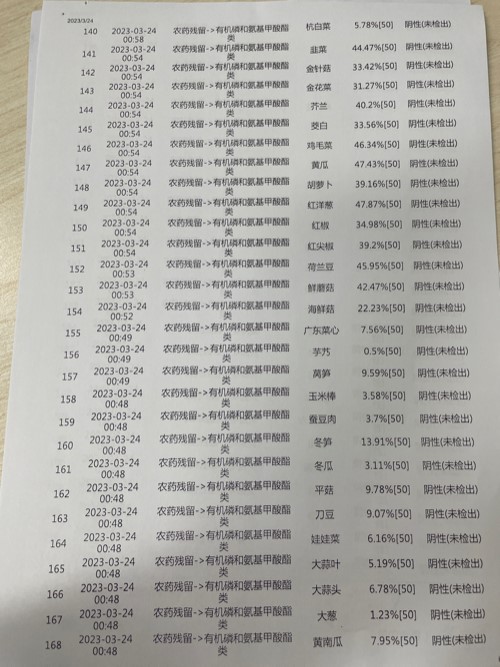 2023/3/24
140 2023-03-24 农药残留->有机磷和氨基甲酸酯 杭白菜 5.78%[50] 阴性(未检出)
00:58 类
141 2023-03-24 农药残留->有机磷和氨基甲酸酯 韭菜 44.47%[50] 阴性(未检出)
00:54 类
142 2023-03-24 农药残留->有机磷和氨基甲酸酯 金针菇 33.42%[50] 阴性(未检出)
00:54 类
143 2023-03-24 农药残留->有机磷和氨基甲酸酯 金花菜 31.27%[50] 阴性(未检出)
00:54 类
144 2023-03-24 农药残留->有机磷和氨基甲酸酯 芥兰 40.2%[50] 阴性(未检出)
00:54 类
145 2023-03-24 农药残留->有机磷和氨基甲酸酯 茭白 33.56%[50] 阴性(未检出)
00:54 类
146 2023-03-24 农药残留->有机磷和氨基甲酸酯 鸡毛菜 46.34%[50] 阴性(未检出)
00:54 类
147 2023-03-24 农药残留->有机磷和氨基甲酸酯 黄瓜 47.43%[50] 阴性(未检出)
00:54 类
148 2023-03-24 农药残留->有机磷和氨基甲酸酯 胡萝卜 39.16%[50] 阴性(未检出)
00:54 类
149 2023-03-24 农药残留->有机磷和氨基甲酸酯 红洋葱 47.87%[50] 阴性(未检出)
00:54 类
150 2023-03-24 农药残留->有机磷和氨基甲酸酯 红椒 34.98%[50] 阴性(未检出)
00:54 类
151 2023-03-24 农药残留->有机磷和氨基甲酸酯 红尖椒 39.2%[50] 阴性(未检出)
00:54 类
152 2023-03-24 农药残留->有机磷和氨基甲酸酯 荷兰豆 45.95%[50] 阴性(未检出)
00:53 类
153 2023-03-24 农药残留->有机磷和氨基甲酸酯 鲜蘑菇 42.47%[50] 阴性(未检出)
00:53 类
154 2023-03-24 农药残留->有机磷和氨基甲酸酯 海鲜菇 22.23%[50] 阴性(未检出)
00:52 类
155 2023-03-24 农药残留->有机磷和氨基甲酸酯 广东菜心 7.56%[50] 阴性(未检出)
00:49 类
156 2023-03-24 农药残留->有机磷和氨基甲酸酯 芋艿 0.5%[50] 阴性(未检出)
00:49 类
157 2023-03-24 农药残留->有机磷和氨基甲酸酯 莴笋 9.59%[50] 阴性(未检出)
00:49 类
158 2023-03-24 农药残留->有机磷和氨基甲酸酯 玉米棒 3.58%[50] 阴性(未检出)
00:48 类
159 2023-03-24 农药残留->有机磷和氨基甲酸酯 蚕豆肉 3.7%[50] 阴性(未检出)
00:48 类
160 2023-03-24 农药残留->有机磷和氨基甲酸酯 冬笋 13.91%[50] 阴性(未检出)
00:48 类
161 2023-03-24 农药残留->有机磷和氨基甲酸酯 冬瓜 3.11%[50] 阴性(未检出)
00:48 类
162 2023-03-24 农药残留->有机磷和氨基甲酸酯 平菇 9.78%[50] 阴性(未检出)
00:48 类
163 2023-03-24 农药残留->有机磷和氨基甲酸酯 刀豆 9.07%[50] 阴性(未检出)
00:48 类
164 2023-03-24 农药残留->有机磷和氨基甲酸酯 娃娃菜 6.16%[50] 阴性(未检出)
00:48 类
165 2023-03-24 农药残留->有机磷和氨基甲酸酯 大蒜叶 5.19%[50] 阴性(未检出)
00:48 类
166 2023-03-24 农药残留->有机磷和氨基甲酸酯 大蒜头 6.78%[50] 阴性(未检出)
00:48 类
167 2023-03-24 农药残留->有机磷和氨基甲酸酯 大葱 1.23%[50] 阴性(未检出)
00:48 类
168 2023-03-24 农药残留->有机磷和氨基甲酸酯 黄南瓜 7.95%[50] 阴性(未检出)
00:48 类